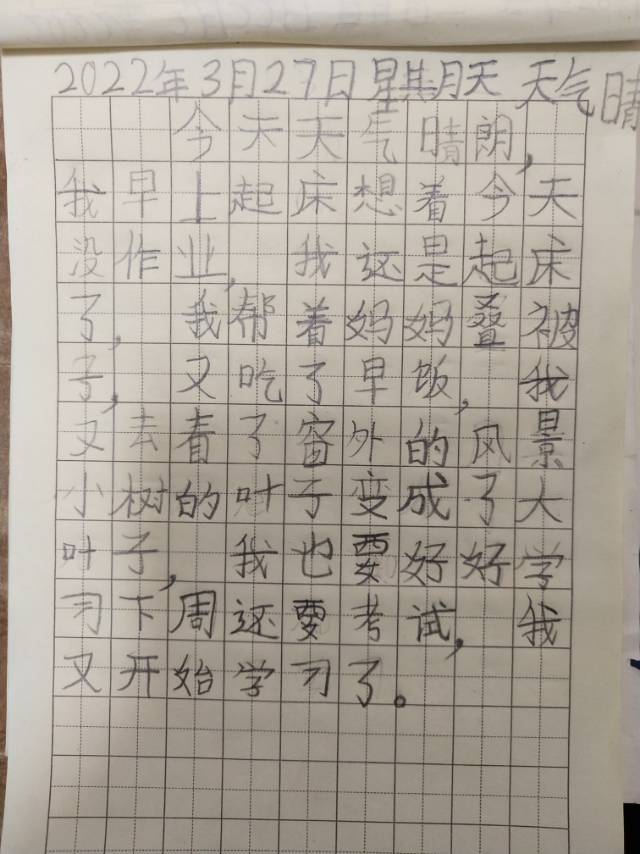 2022年3月27日星期天 天气晴
今天天气晴朗,
我早上起床想着今天
没作业,我还是起床
了,我帮着妈妈叠被
子,又吃了早饭,我
又去看了窗外的风景
小树的叶子变成了大
叶子,我也要好好学
习下周还要考试,我
又开始学习了。